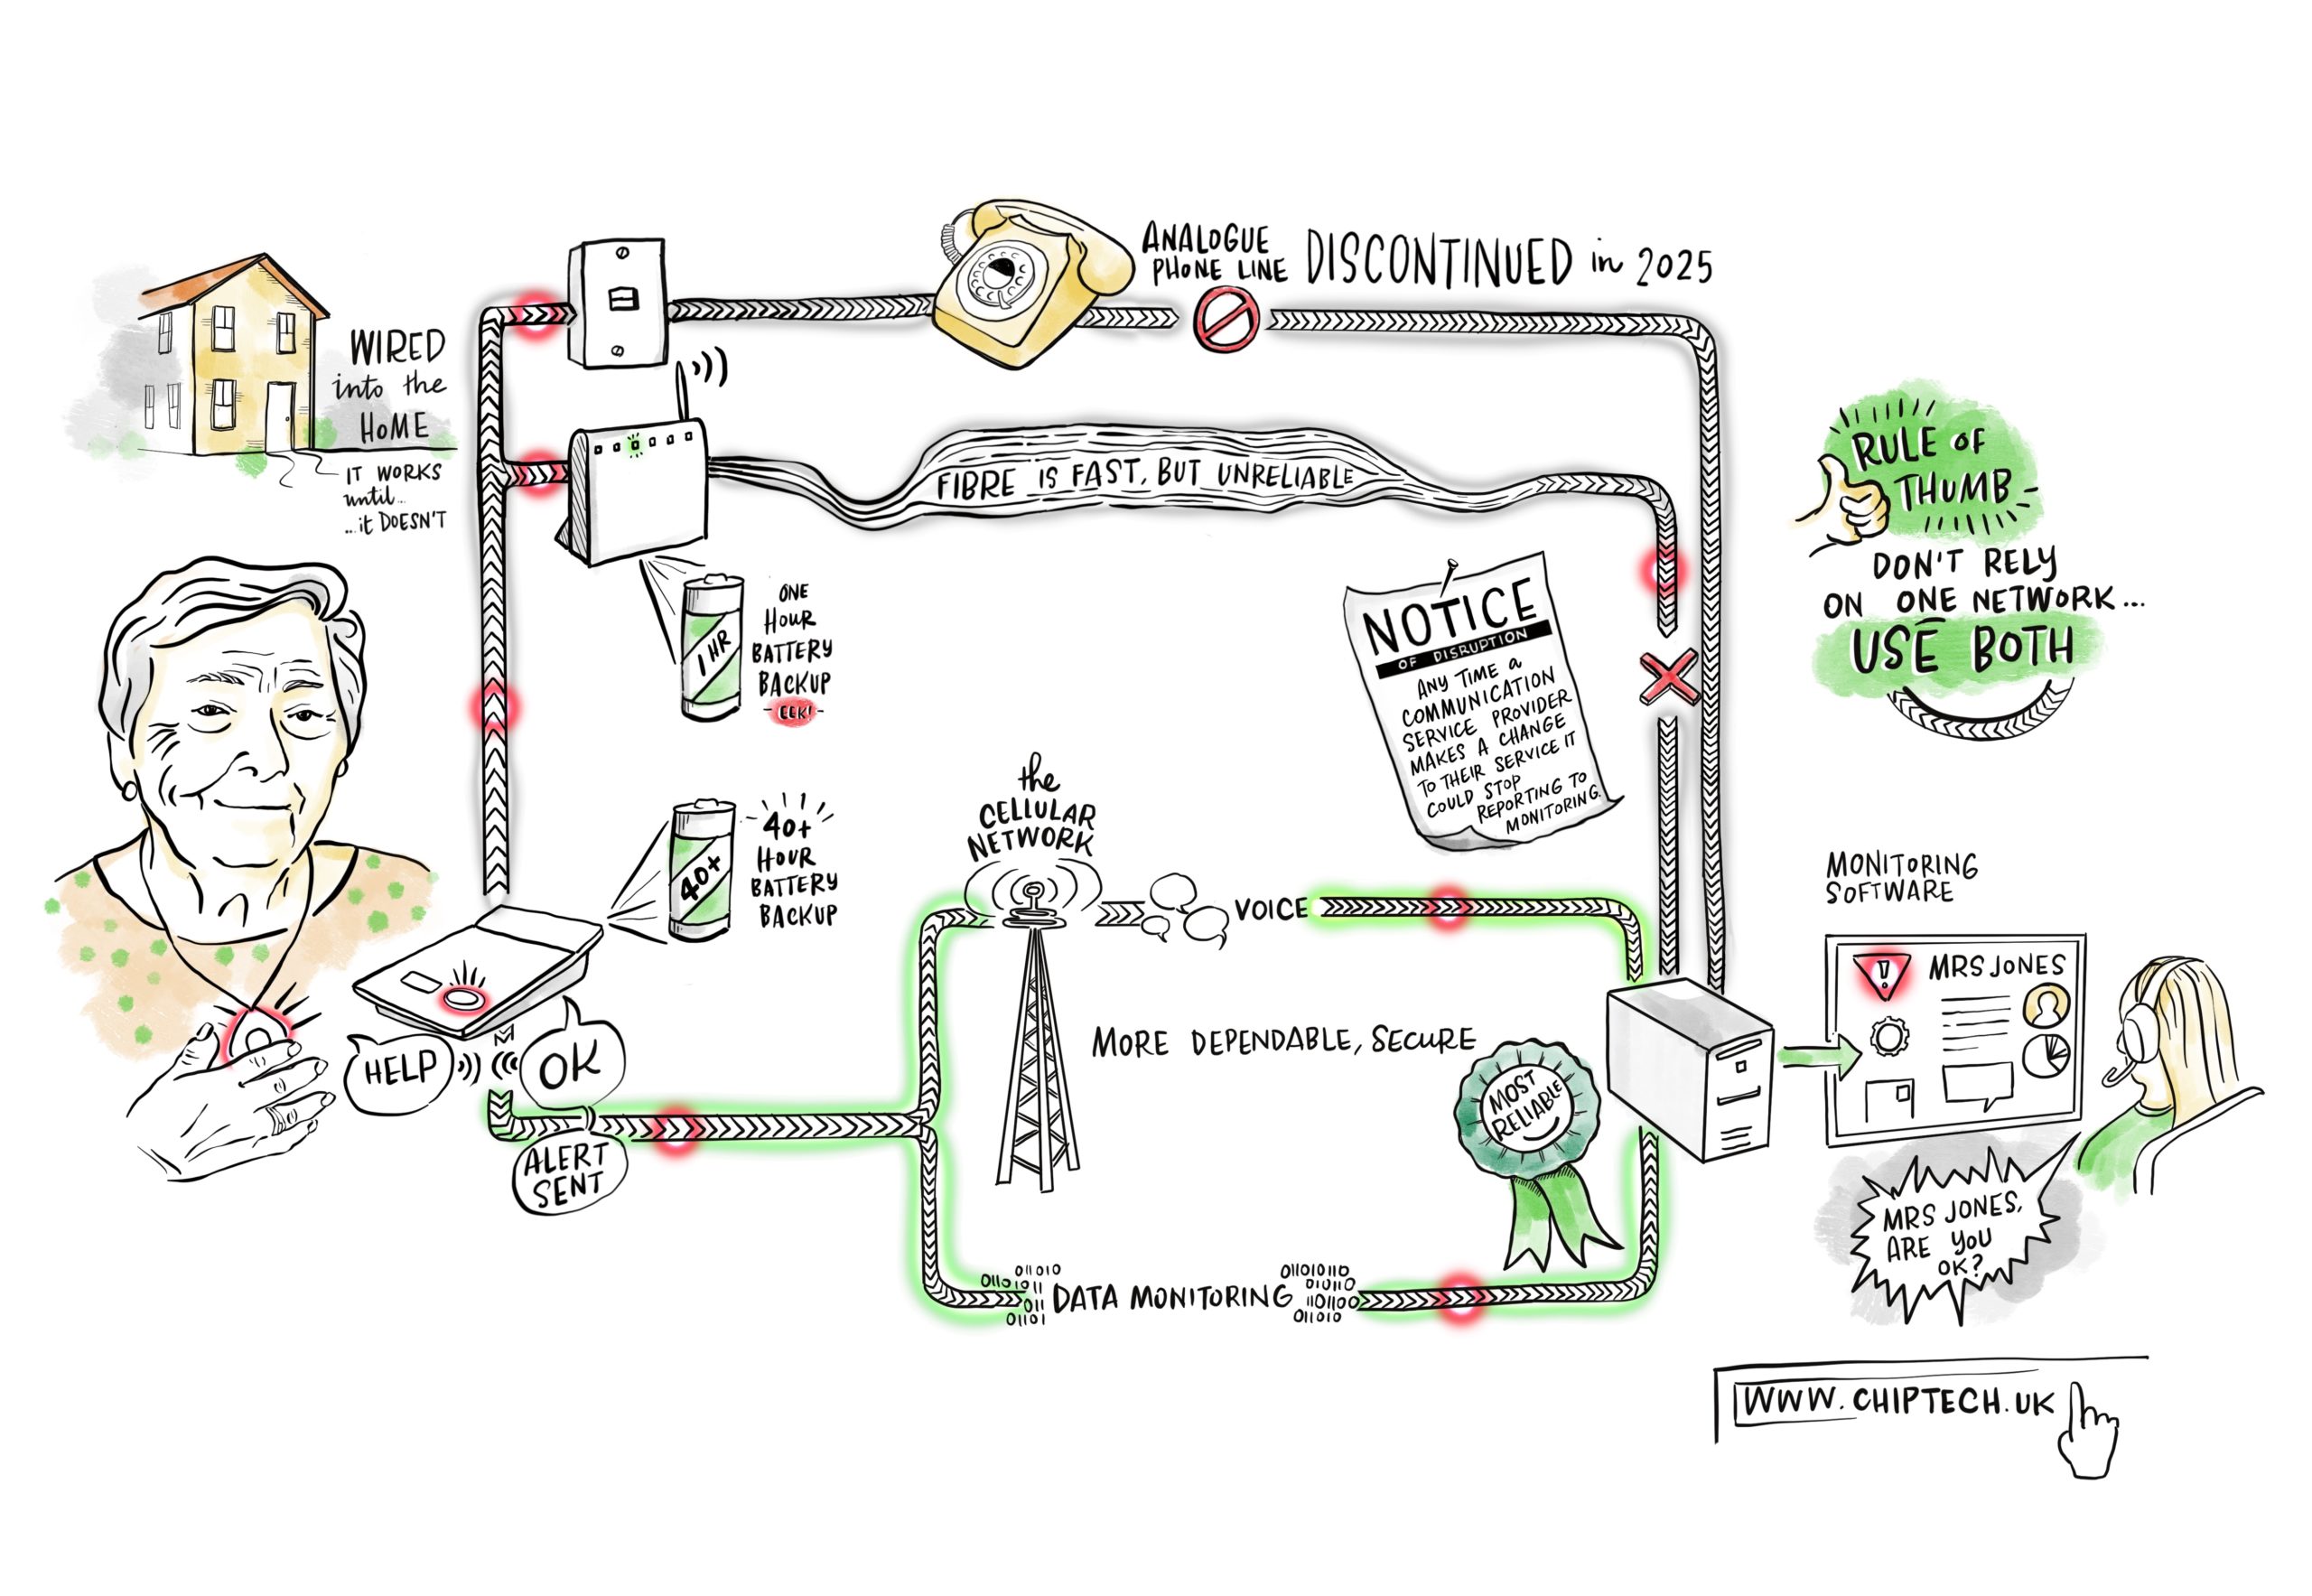 WIRED
into the
HOME
IT WORKS
until...
...it DOESN'T
ANALOGUE
PHONE LINE
DISCONTINUED in 2025
FIBRE IS FAST, BUT UNRELIABLE
1 HR
ONE
HOUR
BATTERY
BACKUP
- EEK! -
40+
40+
HOUR
BATTERY
BACKUP
HELP
OK
ALERT
SENT
the
CELLULAR
NETWORK
VOICE
MORE DEPENDABLE, SECURE
MOST
RELIABLE
011010
0110 1011
011
01101
DATA MONITORING
011010110
010110
1101100
011010
NOTICE
OF DISRUPTION
ANY TIME a
COMMUNICATION
SERVICE PROVIDER
MAKES A CHANGE
TO THEIR SERVICE IT
COULD STOP
REPORTING TO
MONITORING.
RULE OF
THUMB
DON'T RELY
ON ONE NETWORK...
USE BOTH
MONITORING
SOFTWARE
!
MRS JONES
MRS JONES,
ARE YOU
OK?
WWW.CHIPTECH.UK